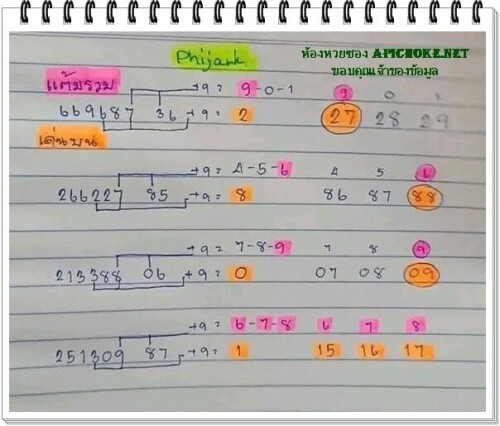 Phijark
ห้องหวยซอง APICHOKE.NET
ขอบคุณเจ้าของข้อมูล
แต้มรวม
+9 = 9-0-1 9 0 1
669687 36 +9 = 2 27 28 29
เด่นบน
+9 = 4-5-6 4 5 6
266227 85 +9 = 8 86 87 88
+9 = 7-8-9 7 8 9
213388 06 +9 = 0 07 08 09
+9 = 6-7-8 6 7 8
251309 87 +9 = 1 15 16 17